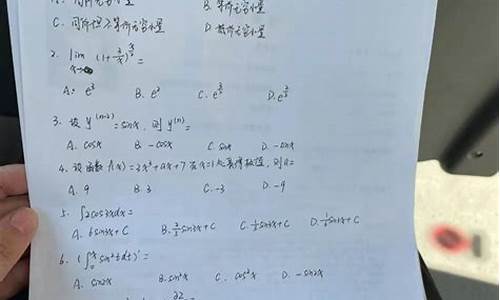 A. 同阶无穷小量 B. 等阶无穷小量
C. 同阶但不等阶无穷小量 D. 高阶无穷小量
2. lim (1+
A. B. C. D.
3. 设 y⁽ⁿ⁻²⁾=sinx, 则 y⁽ⁿ⁾=
A. cosx B. -cosx C. sinx D. -sinx
4. 设函数 f(x)=2x²+ax+7 在x=1处取得极值, 则a=
A. 9 B. 3 C. -3 D. -4
5. ∫2cos3xdx=
A. 6sin3x+C B. ⅔sin3x+C C. ⅓sin3x+C D. ⅙sin3x+C
6. (∫₀ˣsin²tdt)'=
A. sin2x B. sin²x C. cos²x D. -sin2x